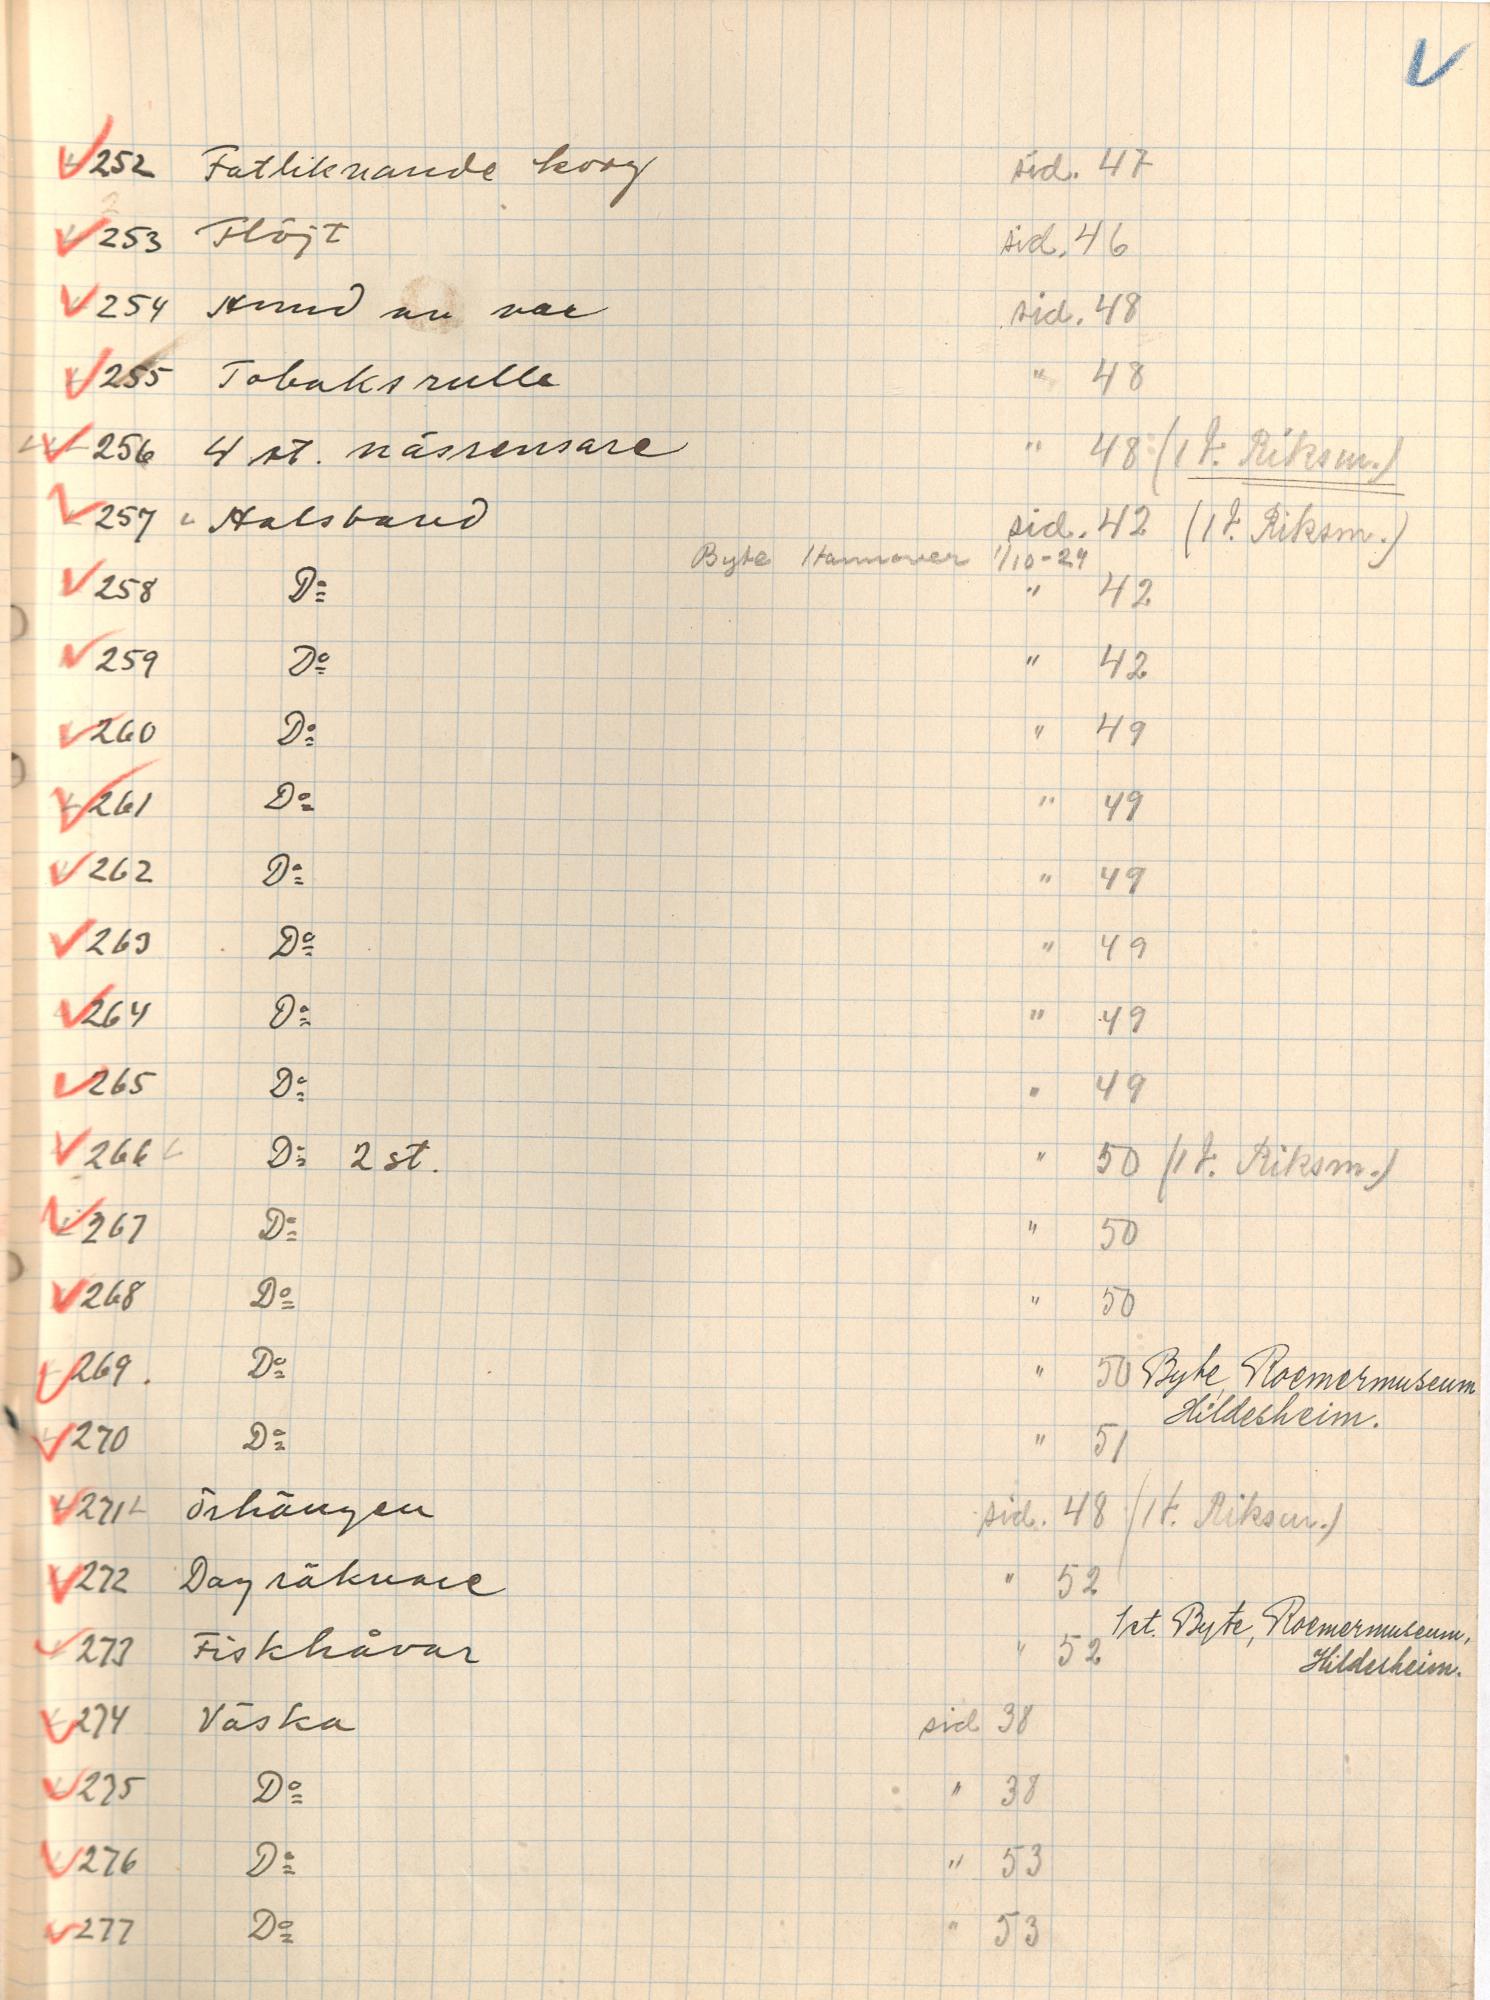 252 Fatliknande korg sid. 47
253 Flöjt sid. 46
254 sid. 48
255 Tobaksrulle " 48
256 4 st. näsrensare " 48 (1 t. Riksm.)
257 Halsband sid. 42 (1 t. Riksm.)
Byte Hannover 1/10-29
258 Do " 42
259 Do " 42
260 Do " 49
261 Do " 49
262 Do " 49
263 Do " 49
264 Do " 49
265 Do " 49
266 Do 2 st. " 50 (1 t. Riksm.)
267 Do " 50
268 Do " 50
269. Do " 50 Byte, Roemermuseum
Hildesheim.
270 Do " 51
271 Örhängen sid. 48 (1 t. Riksm.)
272 Dagräknare " 52
273 Fiskhåvar " 52 1 st. Byte, Roemermuseum,
Hildesheim.
274 Väska sid 38
275 Do " 38
276 Do " 53
277 Do " 53